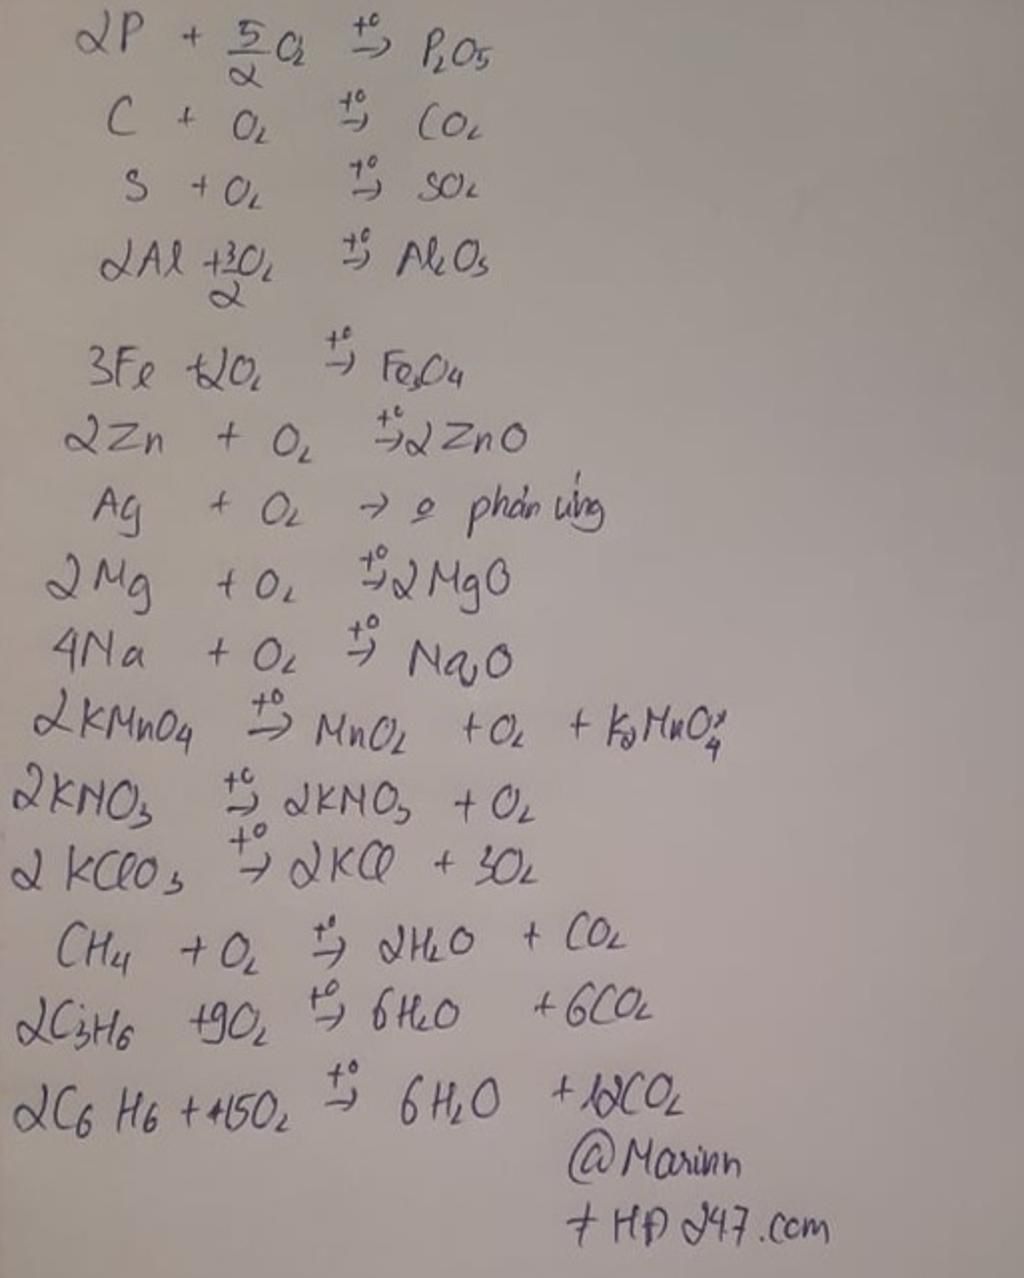 2P + 5/2 O2 t°→ P2O5
C + O2 t°→ CO2
S + O2 t°→ SO2
2Al + 3/2 O2 t°→ Al2O3
3Fe + 2O2 t°→ Fe3O4
2Zn + O2 t°→ 2ZnO
Ag + O2 → o phản ứng
2Mg + O2 t°→ 2MgO
4Na + O2 t°→ Na2O
2KMnO4 t°→ MnO2 + O2 + K2MnO4
2KNO3 t°→ 2KNO3 + O2
2KClO3 t°→ 2KCl + 3O2
CH4 + O2 t°→ 2H2O + CO2
2C3H6 + 9O2 t°→ 6H2O + 6CO2
2C6H6 + 15O2 t°→ 6H2O + 12CO2
@Marinn
≠ HĐ 247.com